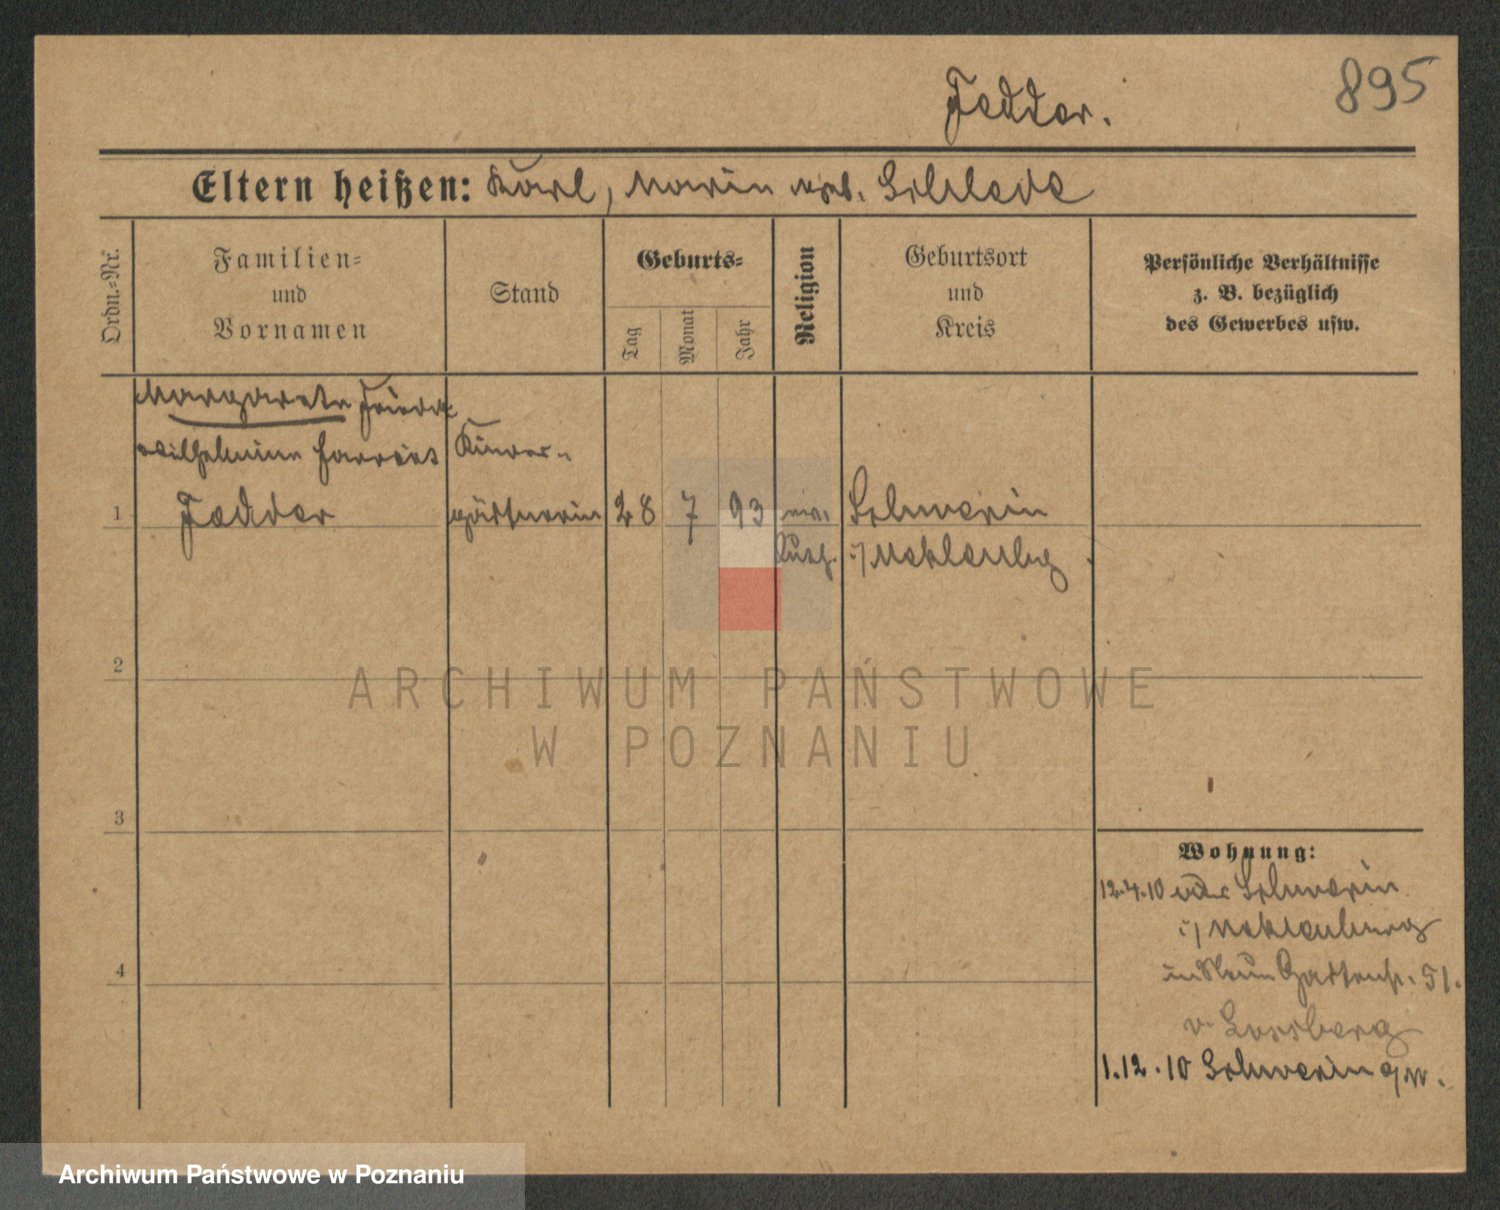 895
Fedder.
Eltern heißen: Karl, Marie geb. Schlede
Ordn.-Nr.
Familien-
und
Vornamen
Stand
Geburts-
Tag
Monat
Jahr
Religion
Geburtsort
und
Kreis
Persönliche Verhältnisse
z. B. bezüglich
des Gewerbes usw.
Margarete Frieda
Wilhelmine Harriet
Fedder
Kinder-
gärtnerin
1
28
7
93
ev.
Luth.
Schwerin
i/ Mecklenbg
2
3
4
Wohnung:
12.4.10 Schwerin
i/ Mecklenburg
Gartenstr. 51.
v. Lossberg
1.12.10 Schwerin a/W.
ARCHIWUM PAŃSTWOWE
W POZNANIU
Archiwum Państwowe w Poznaniu